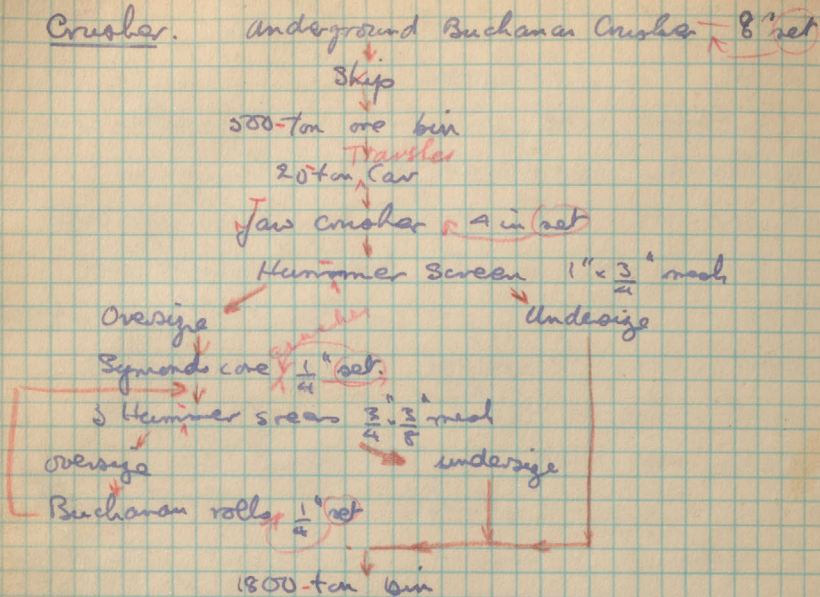 Crusher. Underground Buchanan Crusher - 8" set
Skip
500-ton ore bin
Transfer
20-ton Car
Jaw crusher 4 in set
Hummer Screen 1" x 3/4" mesh
Oversize Undersize
crusher
Symonds cone 1/4" set.
3 Hummer sreens 3/4" x 3/8" mesh
oversize undersize
Buchanan rolls 1/4" set
1800-ton bin